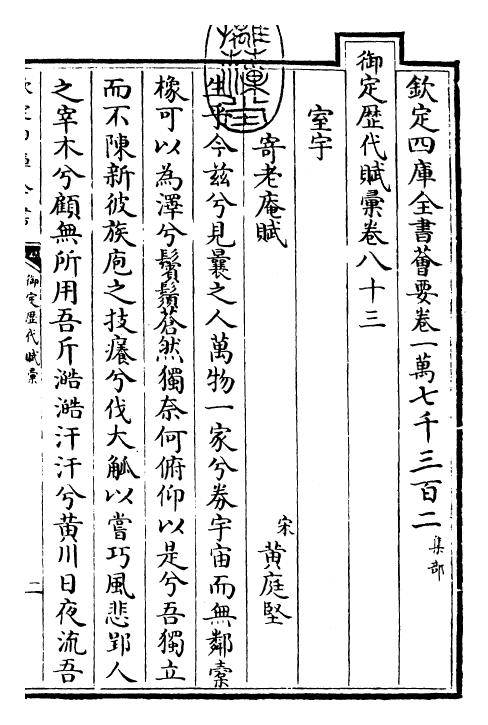 欽定四庫全書薈要卷一萬七千三百二 集部
御定歷代賦彙卷八十三
室宇
寄老庵賦
宋 黃庭堅
生乎今兹兮見曩之人萬物一家兮券宇宙而無鄰槖
橡可以為澤兮鬢鬚蒼然獨奈何俯仰以是兮吾獨立
而不陳新彼族庖之技癢兮伐大觚以嘗巧風悲郢人
之宰木兮顧無所用吾斤澔澔汗汗兮黃川日夜流吾
御定歷代賦彙